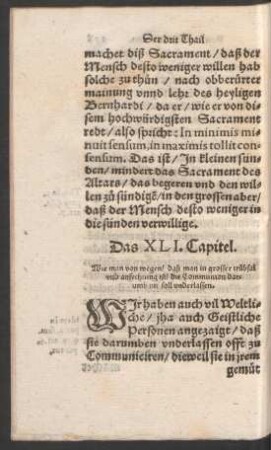 Der drit Thail
machet diß Sacrament / daß der
Mensch desto weniger willen hab
solche zu thůn / nach obberürter
mainung vnnd lehr des heyligen
Bernhardi / da er / wie er von di-
sem hochwürdigsten Sacrament
redt / also spricht: In minimis mi-
nuit sensum, in maximis tollit con-
sensum. Das ist / In kleinen sün-
den / mindert das Sacrament des
Altars / das begeren vnd den wil-
len zů sündigē / in den grossen aber /
daß der Mensch desto weniger in
die sünden verwillige.
Das XLI. Capitel.
Wie man von wegen / daß man in grosser trübsal
vnd anfechtung ist / die Communion dar-
umb nit soll vnderlassen.
WIr haben auch vil Weltli-
che / jha auch Geistliche
Personen angezaigt / daß
sie darumben vnderlassen offt zu
Communicirn / dieweil sie in jrem
gemüt